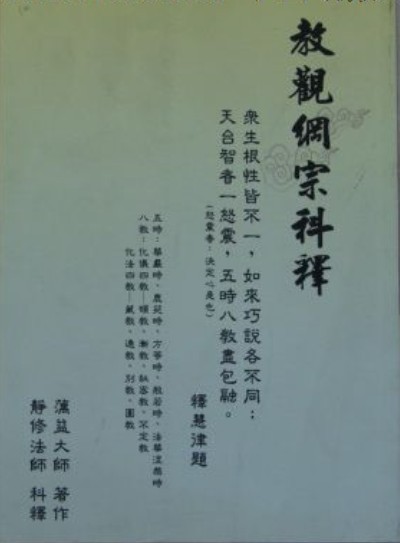 教觀綱宗科釋
衆生根性皆不一，如來巧説各不同；
天台智者一怒震，五時八教盡包融。
(怒震者：決定心是也)
釋慧律題
五時：華嚴時、鹿苑時、方等時、般若時、法華涅槃時
八教：化儀四教—頓教、漸教、秘密教、不定教
化法四教—藏教、通教、別教、圓教
蕅益大師 著作
靜修法師 科釋